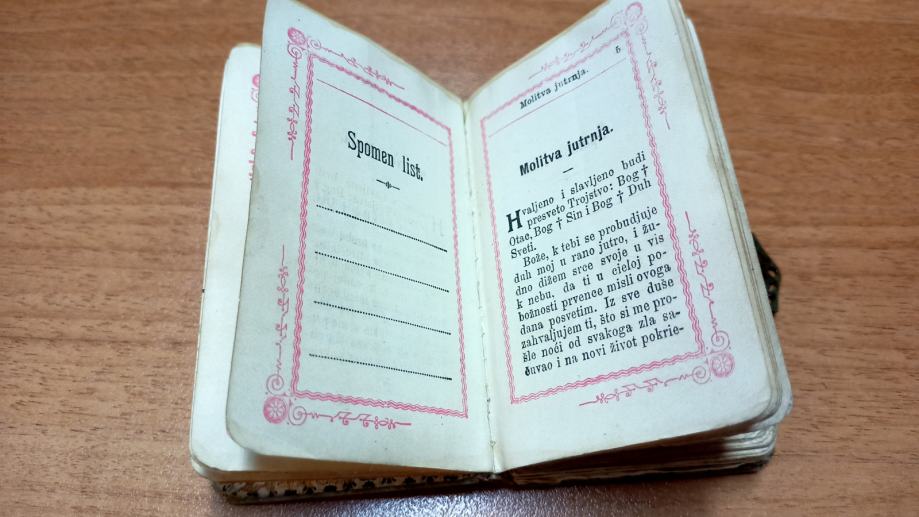 Spomen list.
Molitva jutrnja.
5
Molitva jutrnja.
Hvaljeno i slavljeno budi
presveto Trojstvo: Bog †
Otac, Bog † Sin i Bog † Duh
Sveti.
Bože, k tebi se probudjuje
duh moj u rano jutro, i žu-
dno dižem srce svoje u vis
k nebu, da ti u cieloj po-
božnosti prvence misli ovoga
dana posvetim. Iz sve duše
zahvaljujem ti, što si me pro-
šle noći od svakoga zla sa-
čuvao i na novi život pokrie-